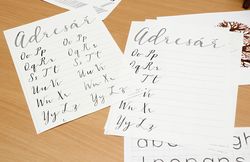 Adresár
Oo Pp
Qq Rr
Ss Tt
Uu Vv
Ww Xx
Yy Zz
Oo Pp
Qq Rr
Ss Tt
Uu Vv
Ww Xx
Yy Zz
Adresár
Oo Pp
Qq Rr
Ss Tt
Uu Vv
Ww Xx
Yy Zz